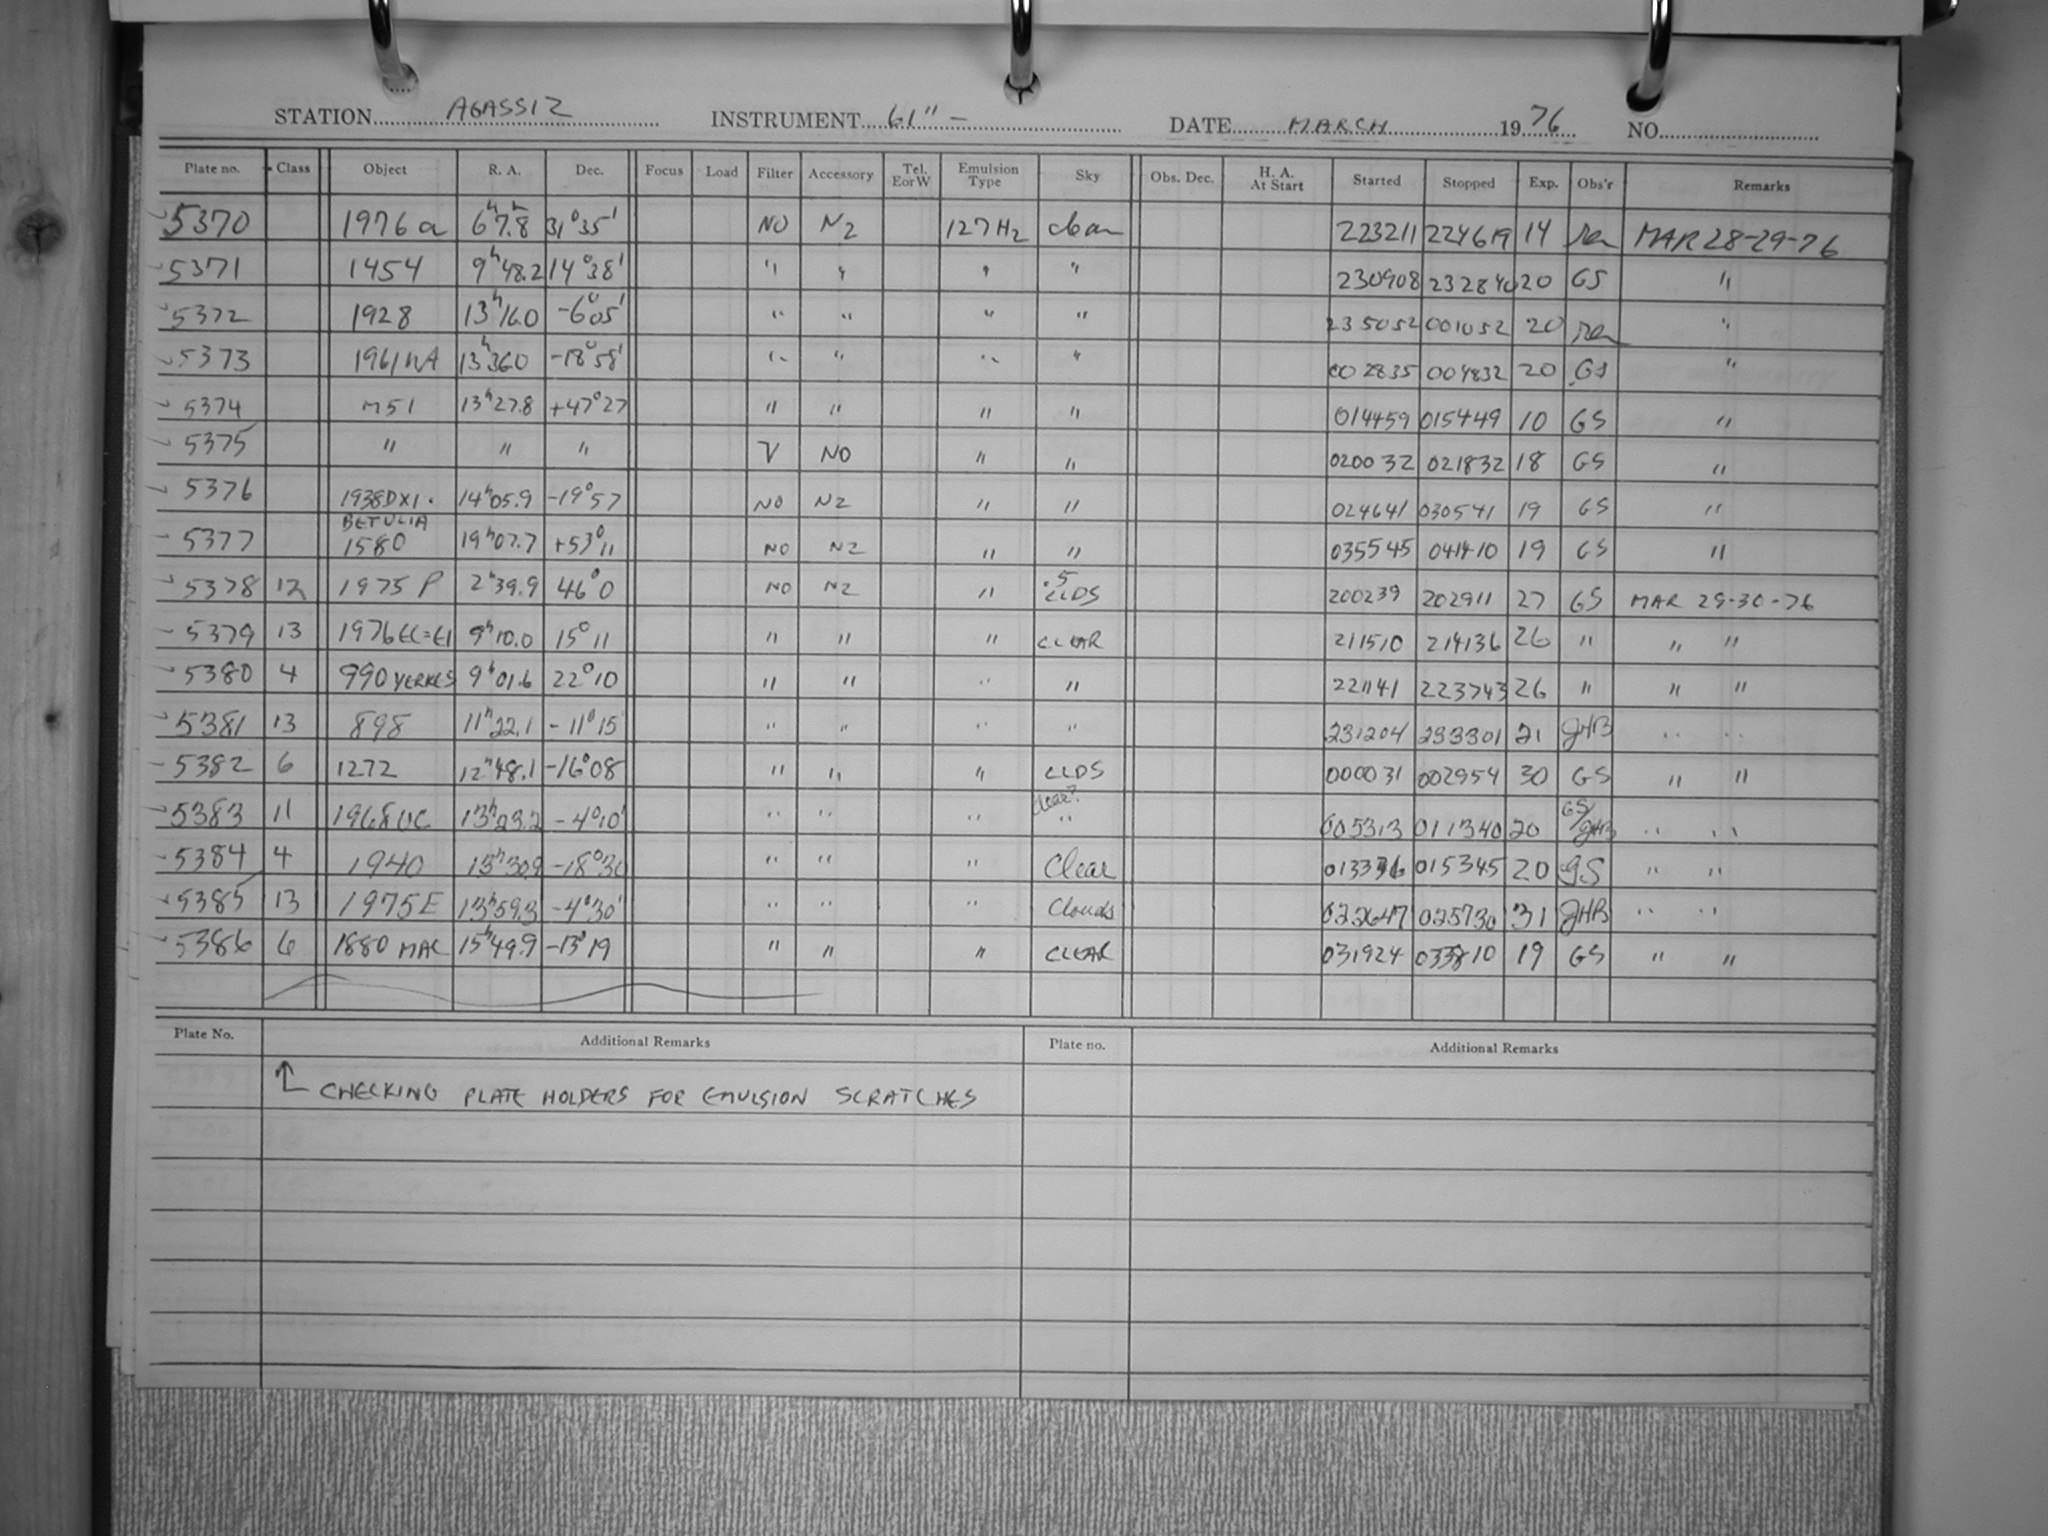 STATION AGASSIZ INSTRUMENT 61" - DATE MARCH 1976 NO.
Plate no. Class Object R. A. Dec. Focus Load Filter Accessory Tel. E or W Emulsion Type Sky Obs. Dec. H. A. At Start Started Stopped Exp. Obs'r Remarks
5370 1976 a 6h 7.8 31° 35' NO N2 127 H2 clear 223211 224619 14 MAR 28-29-76
5371 1454 9h 48.2 14° 38' " " " " 230908 232840 20 GS "
5372 1928 13h 16.0 -6° 05' " " " " 235052 001052 20 "
5373 1961 NA 13h 36.0 -18° 58' " " " " 002835 004832 20 GS "
5374 M51 13h 27.8 +47° 27 " " " " 014459 015449 10 GS "
5375 " " " V NO " " 020032 021832 18 GS "
5376 1938DX1. 14h 05.9 -19° 57 NO N2 " " 024641 030541 19 GS "
5377 BETULIA 1580 19h 07.7 +53° 11 NO N2 " " 035545 041410 19 GS "
5378 12 1975 P 2h 39.9 46° 0 NO N2 " .5 CLDS 200239 202911 27 GS MAR 29-30-76
5379 13 1976 EC=E1 9h 10.0 15° 11 " " " CLEAR 211510 214136 26 " " "
5380 4 990 YERKES 9h 01.6 22° 10 " " " " 221141 223743 26 " " "
5381 13 898 11h 22.1 -11° 15 " " " " 231204 233301 21 JHB " "
5382 6 1272 12h 48.1 -16° 08 " " " CLDS 000031 002954 30 GS " "
5383 11 1968 UC 13h 23.2 -4° 10' " " " clear? " 005313 011340 20 GS/JHB " "
5384 4 1940 13h 30.9 -18° 30 " " " Clear 015345 20 GS " "
5385 13 1975E 13h 59.3 -4° 30' " " " Clouds 022647 025730 31 JHB " "
5386 6 1880 MAC 15h 49.9 -13° 19 " " " CLEAR 031924 033810 19 GS " "
Plate No. Additional Remarks Plate no. Additional Remarks
↑ CHECKING PLATE HOLDERS FOR EMULSION SCRATCHES